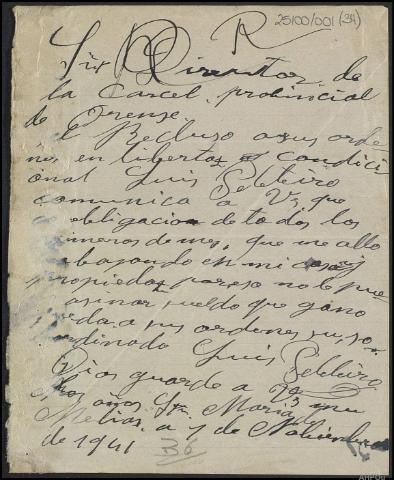 25100/001 (34)
R
Sir Director de
la Carcel provincial
de Orense
el Recluso a sus orde
nes en libertaz condici
onal Luis Peleteiro
comunica a Vs, que
obligacion de todos los
imeros de mes, que me allo
abajando en mi casa y
ropiedaz por eso no le pue
asinar sueldo que gano
eda a sus ordenes su, so
ordinado Luis Peleteiro
Dios guarde a Vs mu
chos años Sta Maria de
Melias a 1 de Nobiembre
de 1941
36
AHPOu